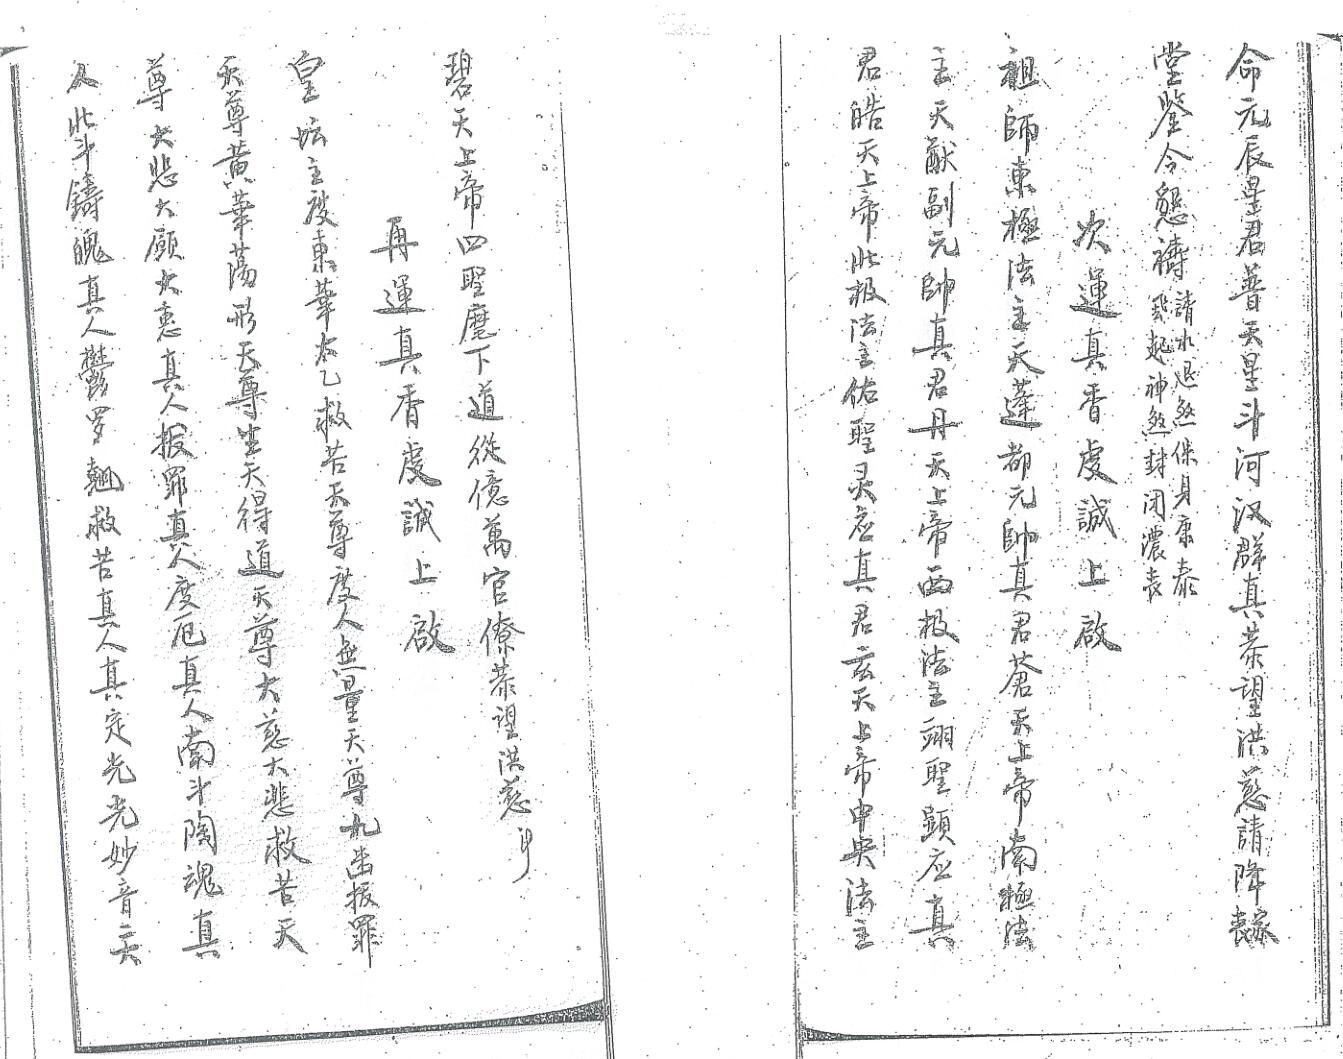 命元辰星君普天星斗河汉群真恭望洪慈請降喪家
堂鑒今懇禱
請水退煞保身康泰
飛起神煞封閉濃喪
次運真香虔誠上啟
祖師東極法主天蓬都元帥真君蒼天上帝南極法
主天猷副元帥真君丹天上帝西极法主翊聖顕应真
君皓天上帝北极法主佑聖灵应真君玄天上帝中央法主
碧天上帝四聖麾下道從億萬官僚恭望洪慈
再運真香虔誠上啟
皇坛主度東華太乙救苦天尊度人無量天尊九幽拔罪
天尊黄華蕩形天尊生天得道天尊大慈大悲救苦天
尊大悲大願大惠真人拔罪真人度厄真人南斗陶魂真
人北斗鑄魄真人鬱罗翹救苦真人真定光光妙音二大